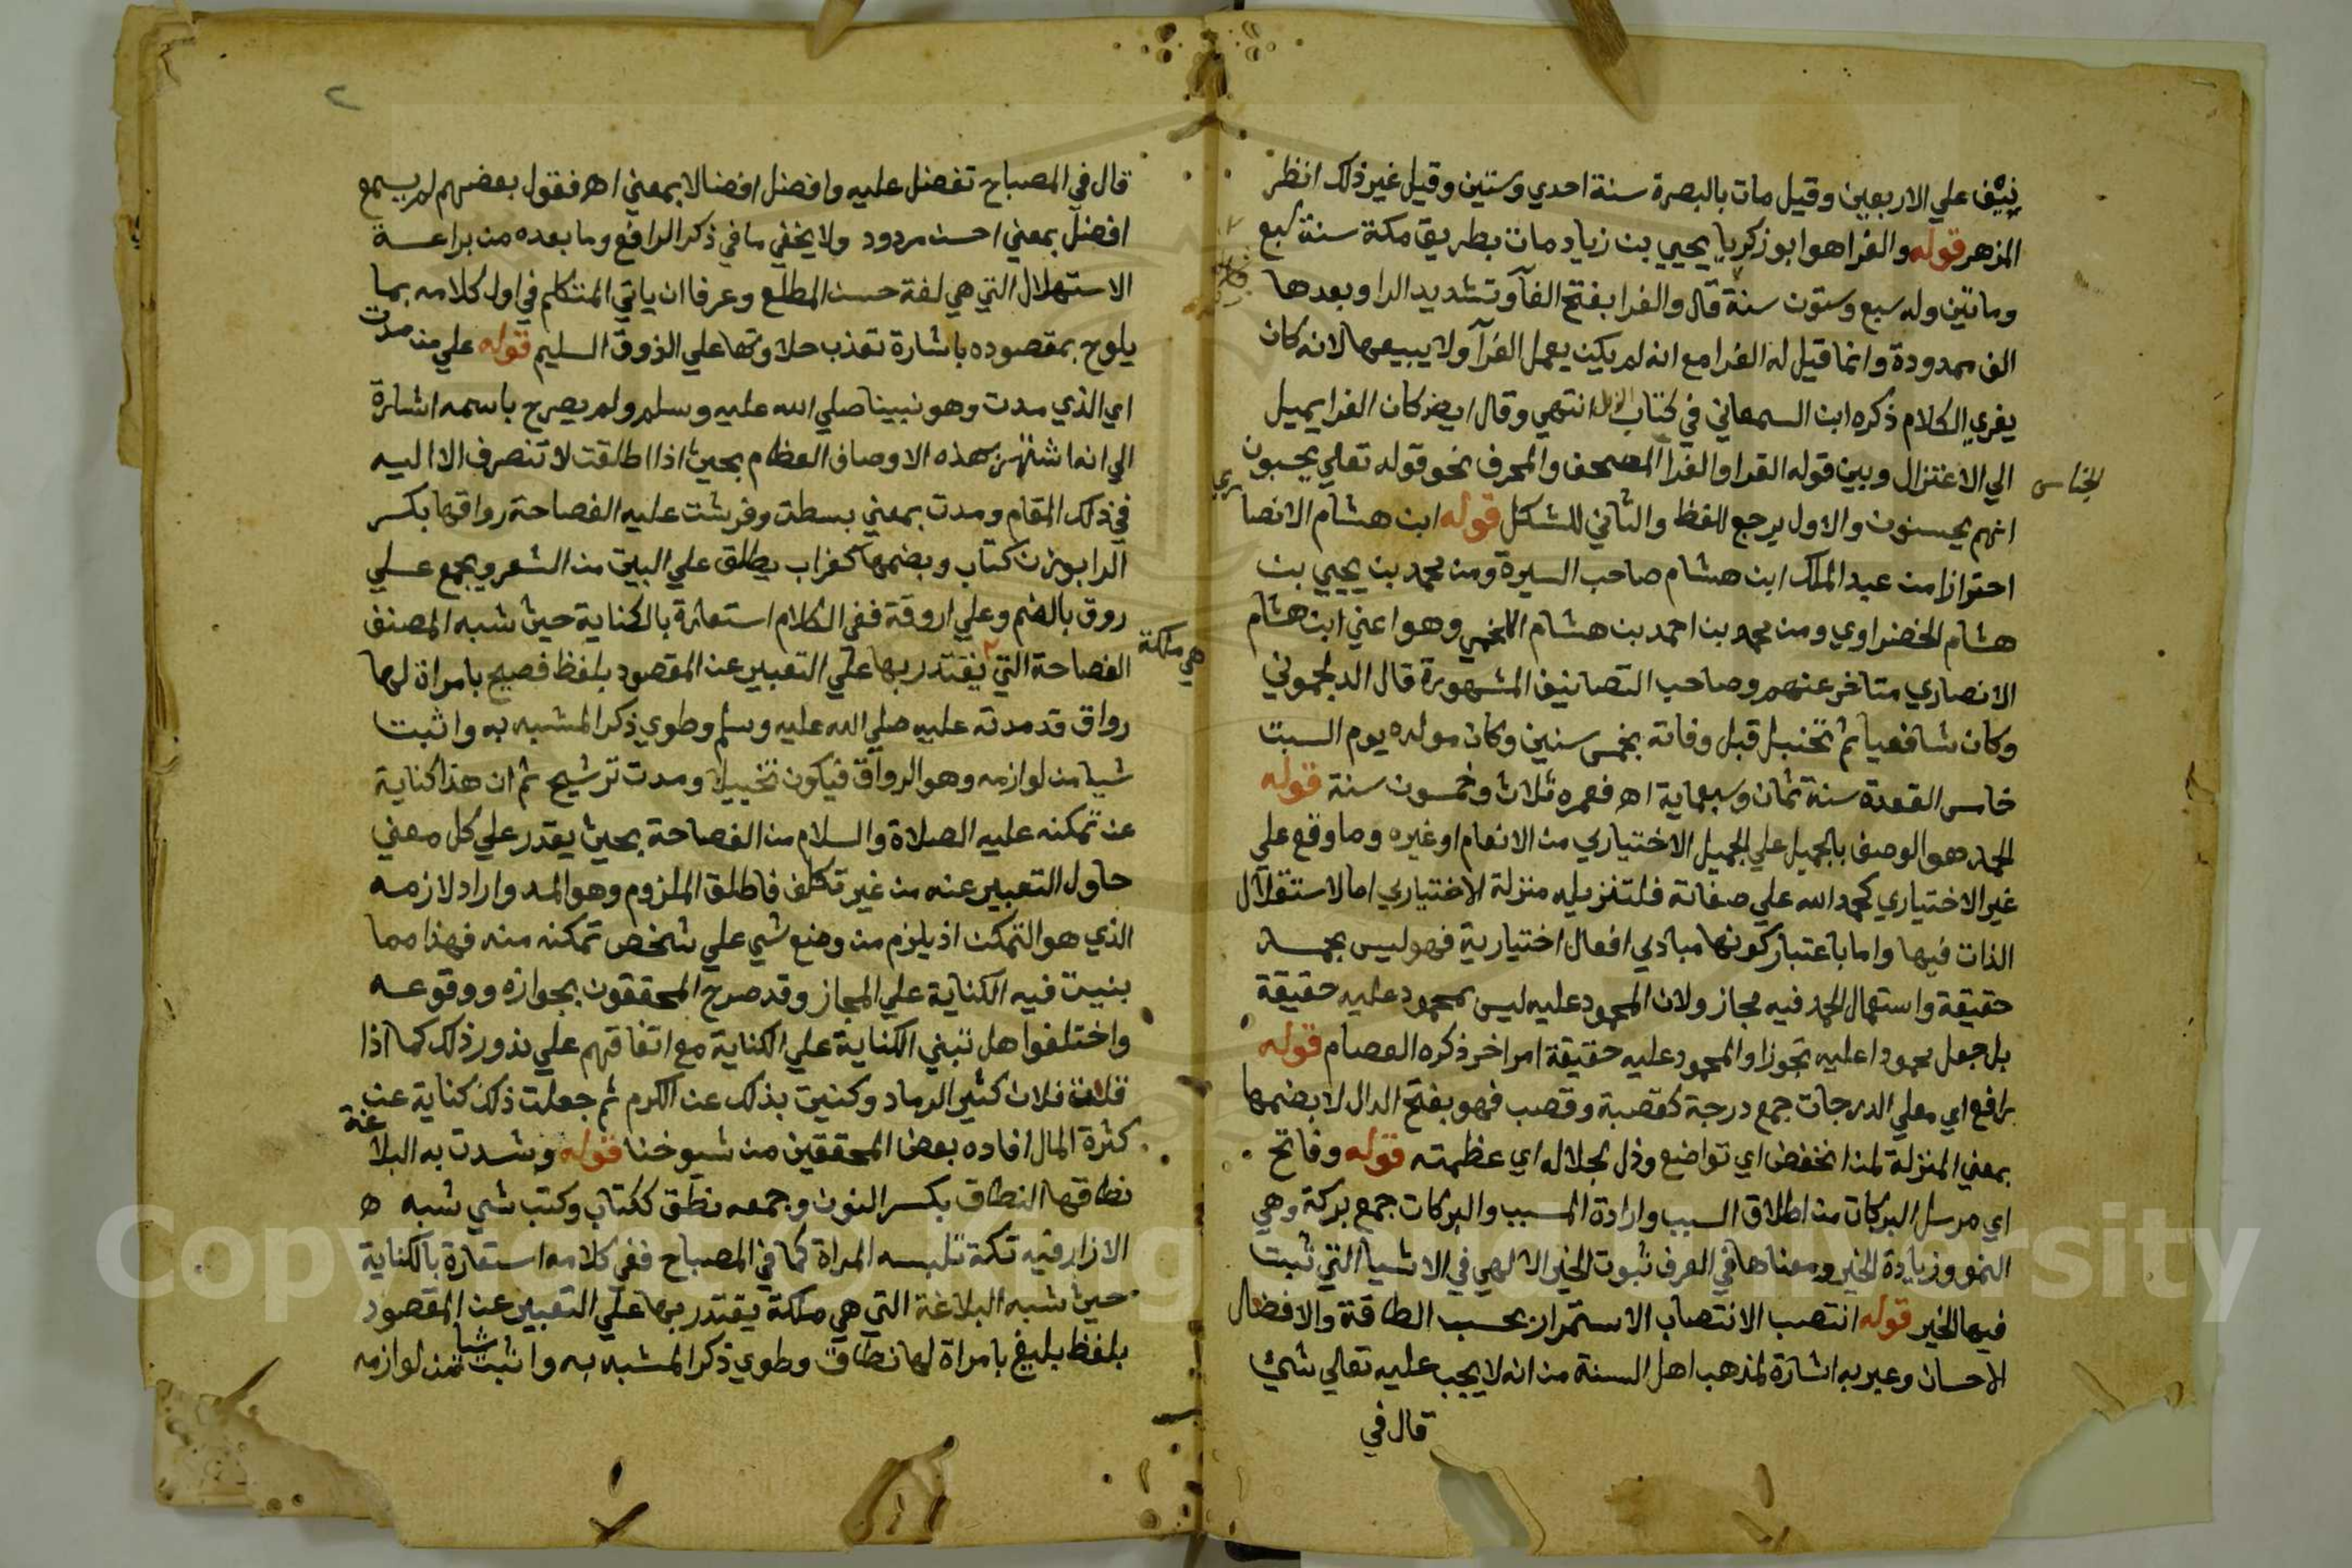 نيف علي الاربعين وقيل مات بالبصرة سنة احدي وستين وقيل غير ذلك انظر
المزهر قوله والفرا هو ابو زكريا يحيي بن زياد مات بطريق مكة سنة سبع
وماتين وله سبع وستون سنة قال والفرا بفتح الفآ وتشديد الرا وبعدها
الف ممدودة وانما قيل له الفرا مع انه لم يكن يعمل الفرآ ولا يبيعها لانه كان
يفري الكلام ذكره ابن السمعاني في كتاب انتهي وقال ايضا كان الفرا يميل
الي الاعتزال وبين قوله القرا والفرا المصحف والمحرف نحو قوله تعالي يحسبون
الجناس
انهم يحسنون والاول يرجع للفظ والثاني للشكل قوله ابن هشام الانصاري
احترازا من عبد الملك ابن هشام صاحب السيرة ومن محمد بن يحيي بن
هشام الخضراوي ومن محمد بن احمد بن هشام اللخمي وهو اعني ابن هشام
الانصاري متاخر عنهم وصاحب التصانيف المشهورة قال الدلجموني
وكان شافعيا ثم تحنبل قبل وفاته بخمس سنين وكان مولده يوم السبت
خامس القعدة سنة ثمان وسبعماية اه فعمره ثلاث وخمسون سنة قوله
الحمد هو الوصف بالجميل علي الجميل الاختياري من الانعام او غيره وما وقع علي
غير الاختياري كحمد الله علي صفاته فلتنزيله منزلة الاختياري اما لاستقلال
الذات فيها واما باعتبار كونها مبادي افعال اختيارية فهو ليس بحمد
حقيقة واستعمال الحمد فيه مجاز ولان المحمود عليه ليس بمحمود عليه حقيقة
بل جعل محمودا عليه تجوزا والمحمود عليه حقيقة امر اخر ذكره العصام قوله
رافع اي معلي الدرجات جمع درجة كقصبة وقصب فهو بفتح الدال لا بضمها
بمعني المنزلة لمن انخفض اي تواضع وذل لجلاله اي عظمته قوله وفاتح
اي مرسل البركات من اطلاق السبب وارادة المسبب والبركات جمع بركة وهي
النمو وزيادة الخير ومعناها في العرف ثبوت الخير الالهي في الاشيا التي ثبت
فيها الخير قوله انتصب الانتصاب الاستمرار بحسب الطاقة والافضال
الاحسان وعبر به اشارة لمذهب اهل السنة من انه لا يجب عليه تعالي شيئ
قال في
٢
قال في المصباح تفضل عليه وافضل افضالا بمعني اه فقول بعضهم لم يسمع
افضل بمعني احسن مردود ولا يخفي ما في ذكر الرافع وما بعده من براعة
الاستهلال التي هي لغة حسن المطلع وعرفا ان ياتي المتكلم في اول كلامه بما
يلوح بمقصوده باشارة تعذب حلاوتها علي الذوق السليم قوله علي من مدت
اي الذي مدت وهو نبينا صلي الله عليه وسلم ولم يصرح باسمه اشارة
الي انه اشتهر بهذه الاوصاف العظام بحيث اذا اطلقت لا تنصرف الا اليه
في ذلك المقام ومدت بمعني بسطت وفرشت عليه الفصاحة رواقها بكسر
الرا بوزن كتاب وبضمها كغراب يطلق علي البيت من الشعر ويجمع علي
روق بالضم وعلي اروقة ففي الكلام استعارة بالكناية حيث شبه المصنف
الفصاحة التي يقتدر بها علي التعبير عن المقصود بلفظ فصيح بامراة لها
هي ملكة
رواق قد مدته عليه صلي الله عليه وسلم وطوي ذكر المشبه به واثبت
شيا من لوازمه وهو الرواق فيكون تخييلا ومدت ترشيح ثم ان هذا كناية
عن تمكنه عليه الصلاة والسلام من الفصاحة بحيث يقدر علي كل معني
حاول التعبير عنه من غير تكلف فاطلق الملزوم وهو المد واراد لازمه
الذي هو التمكن اذ يلزم من وضع شي علي شخص تمكنه منه فهذا مما
بنيت فيه الكناية علي المجاز وقد صرح المحققون بجوازه ووقوعه
واختلفوا هل تبني الكناية علي الكناية مع اتفاقهم علي ندور ذلك كما اذا
قلت فلان كثير الرماد وكنيت بذلك عن الكرم ثم جعلت ذلك كناية عن
كثرة المال افاده بعض المحققين من شيوخنا قوله وشدت به البلاغة
نطاقها النطاق بكسر النون وجمعه نطق ككتاب وكتب شي شبه ه
الازار فيه تكة تلبسه المراة كما في المصباح ففي كلامه استعارة بالكناية
حيث شبه البلاغة التي هي ملكة يقتدر بها علي التعبير عن المقصود
بلفظ بليغ بامراة لها نطاق وطوي ذكر المشبه به واثبت شيا من لوازمه
Copyright © King Saud University